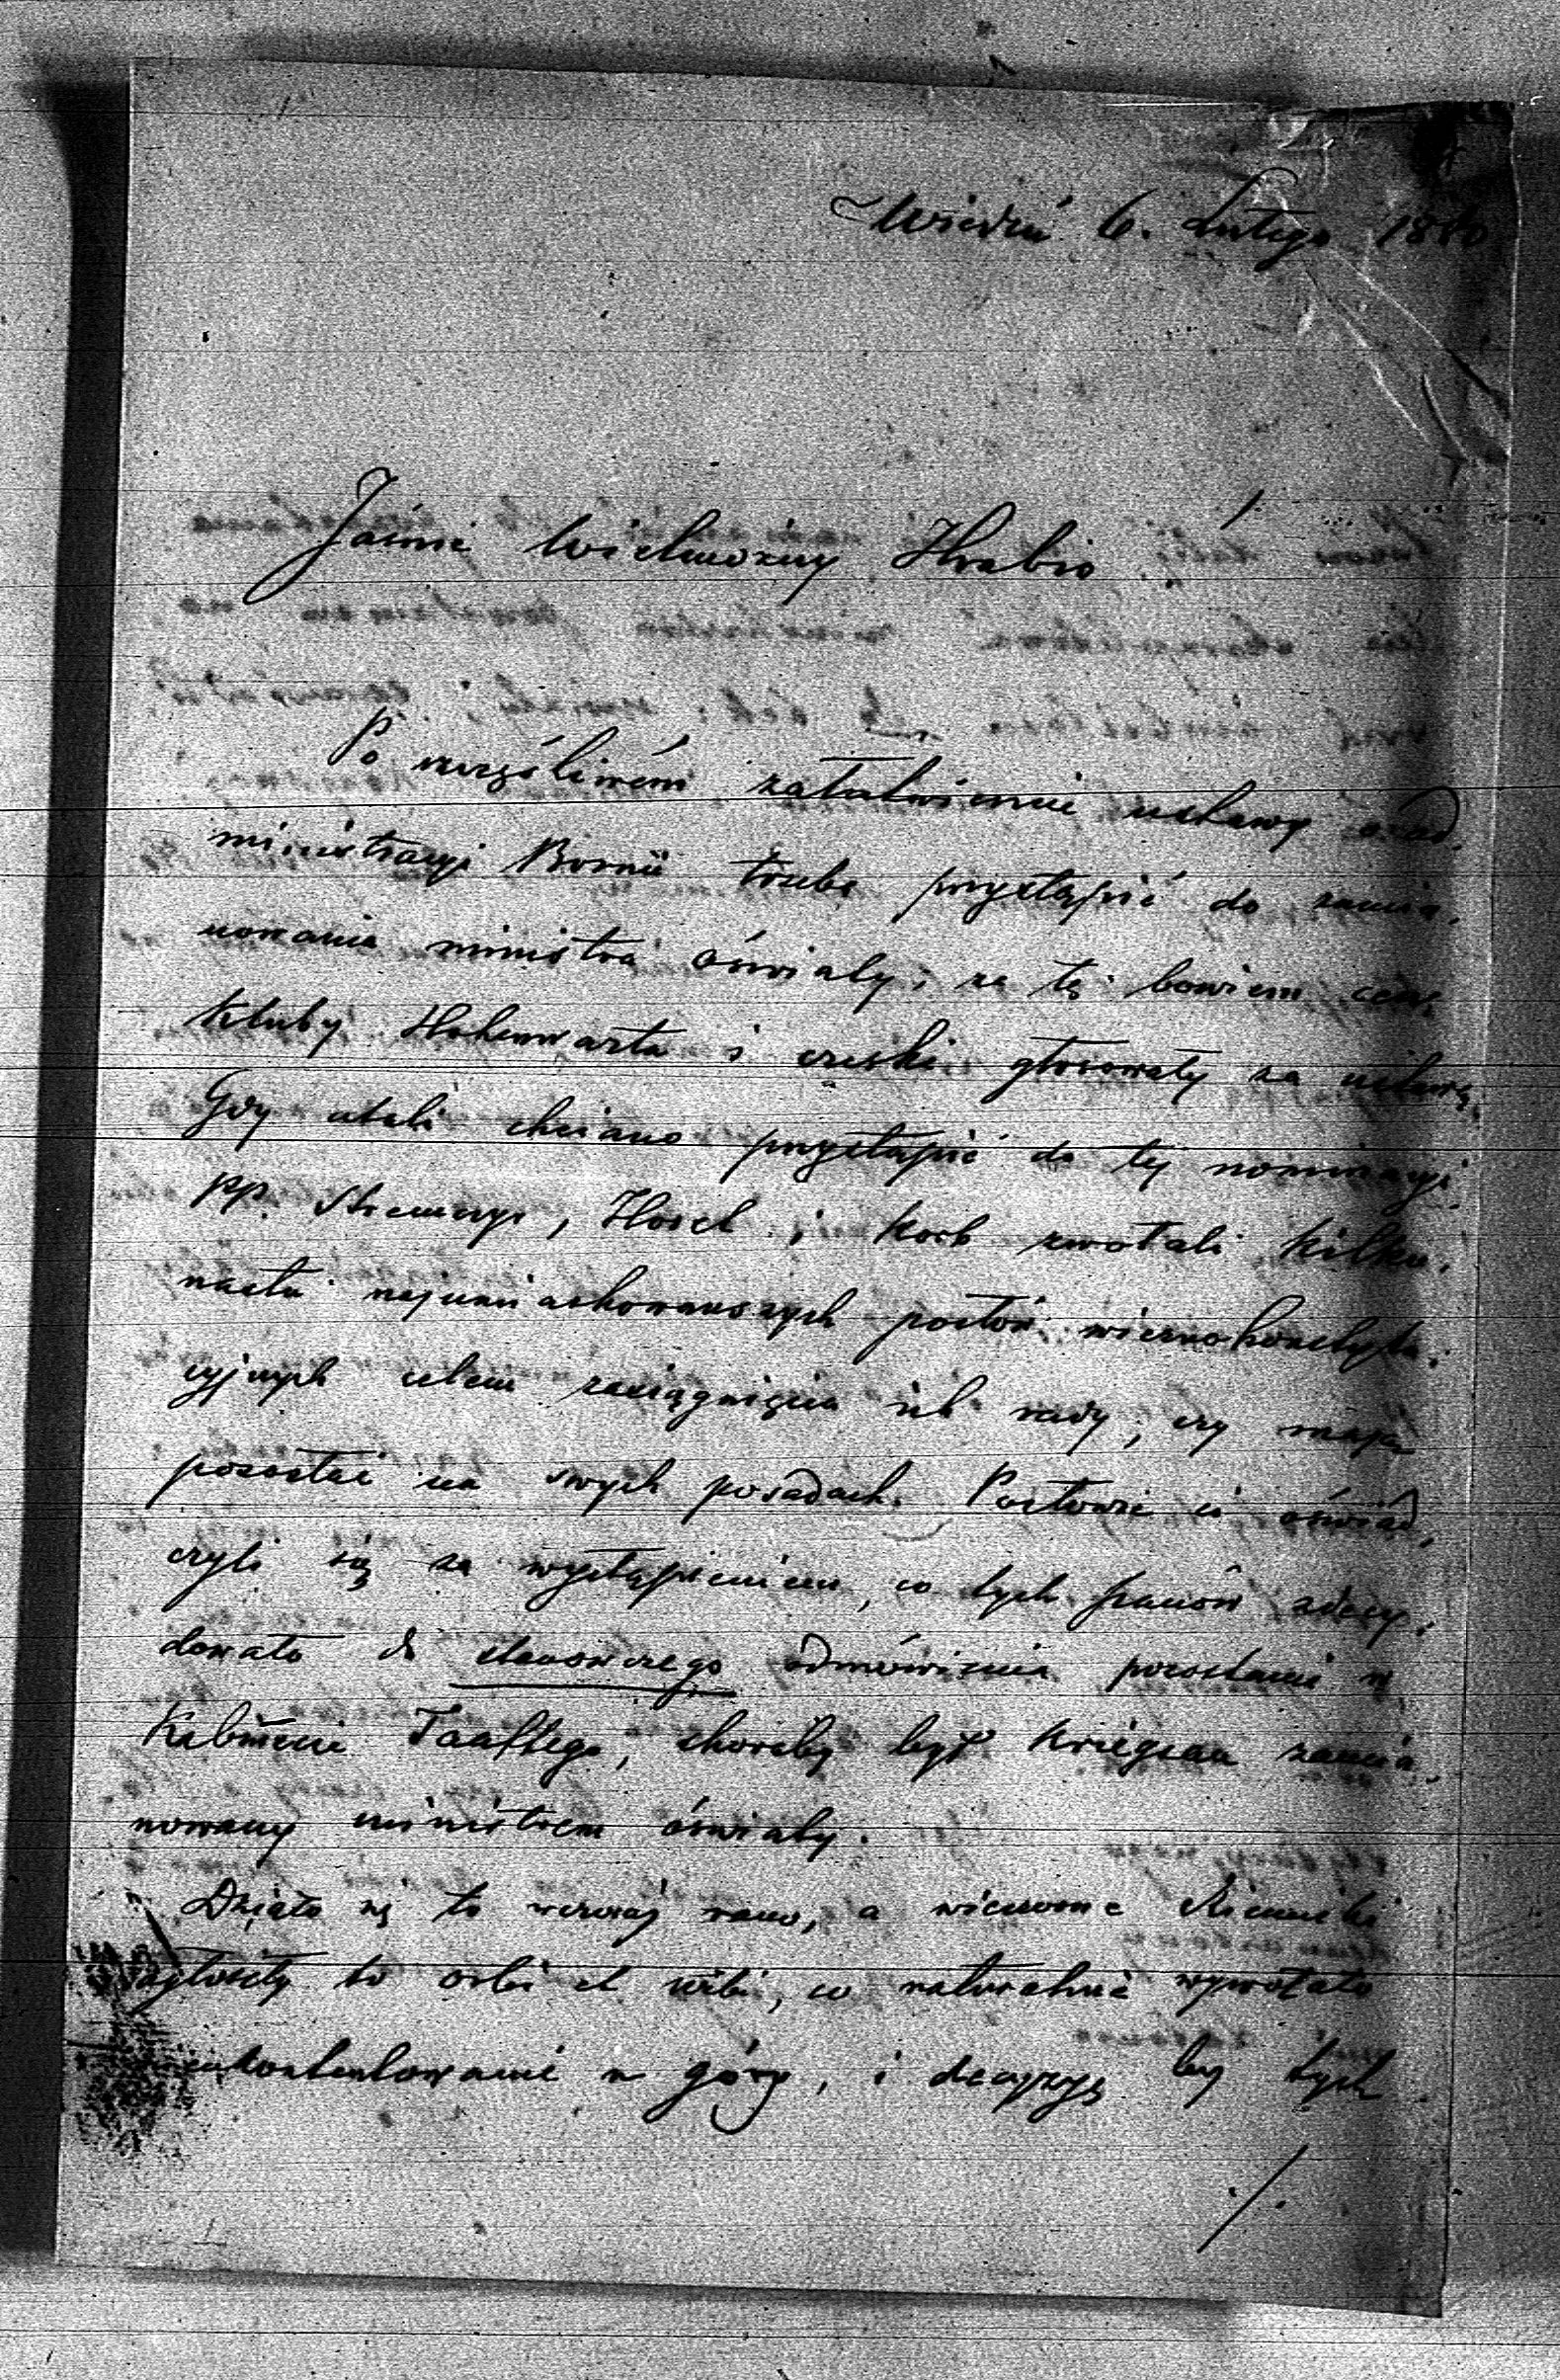 Wiedeń 6. Lutego 1880
Jaśnie Wielmożny Hrabio!
Po szczęśliwém załatwieniu ustawy o ad,
ministracyi Bosnii trzeba przystąpić do zamia,
nowania ministra oświaty, za tę bowiem cenę
kluby Hohenwarta i czeski głosowały za ustawą.
Gdy atoli chciano przystąpić do tej nominacyi
pp. Stremayr, Horst i Korb zwołali kilku,
nastu najumiarkowańszych posłów wiernokonstytu,
cyjnych celem zasiągnięcia ich rady, czy mają
pozostać na swych posadach. Posłowie ci oświad,
czyli się za wystąpieniem, co tych panów zdecy,
dowało do stanowczego odmówienia pozostania w
Kabinecie Taaffego, choćby był Kriegsau zamia,
nowany ministrem oświaty.
Działo się to wczoraj rano, a wieczorne dzienniki
ogłosiły to orbi et urbi, co naturalnie wywołało
nieukontentowanie w góry, i decyzyę by tych
./.